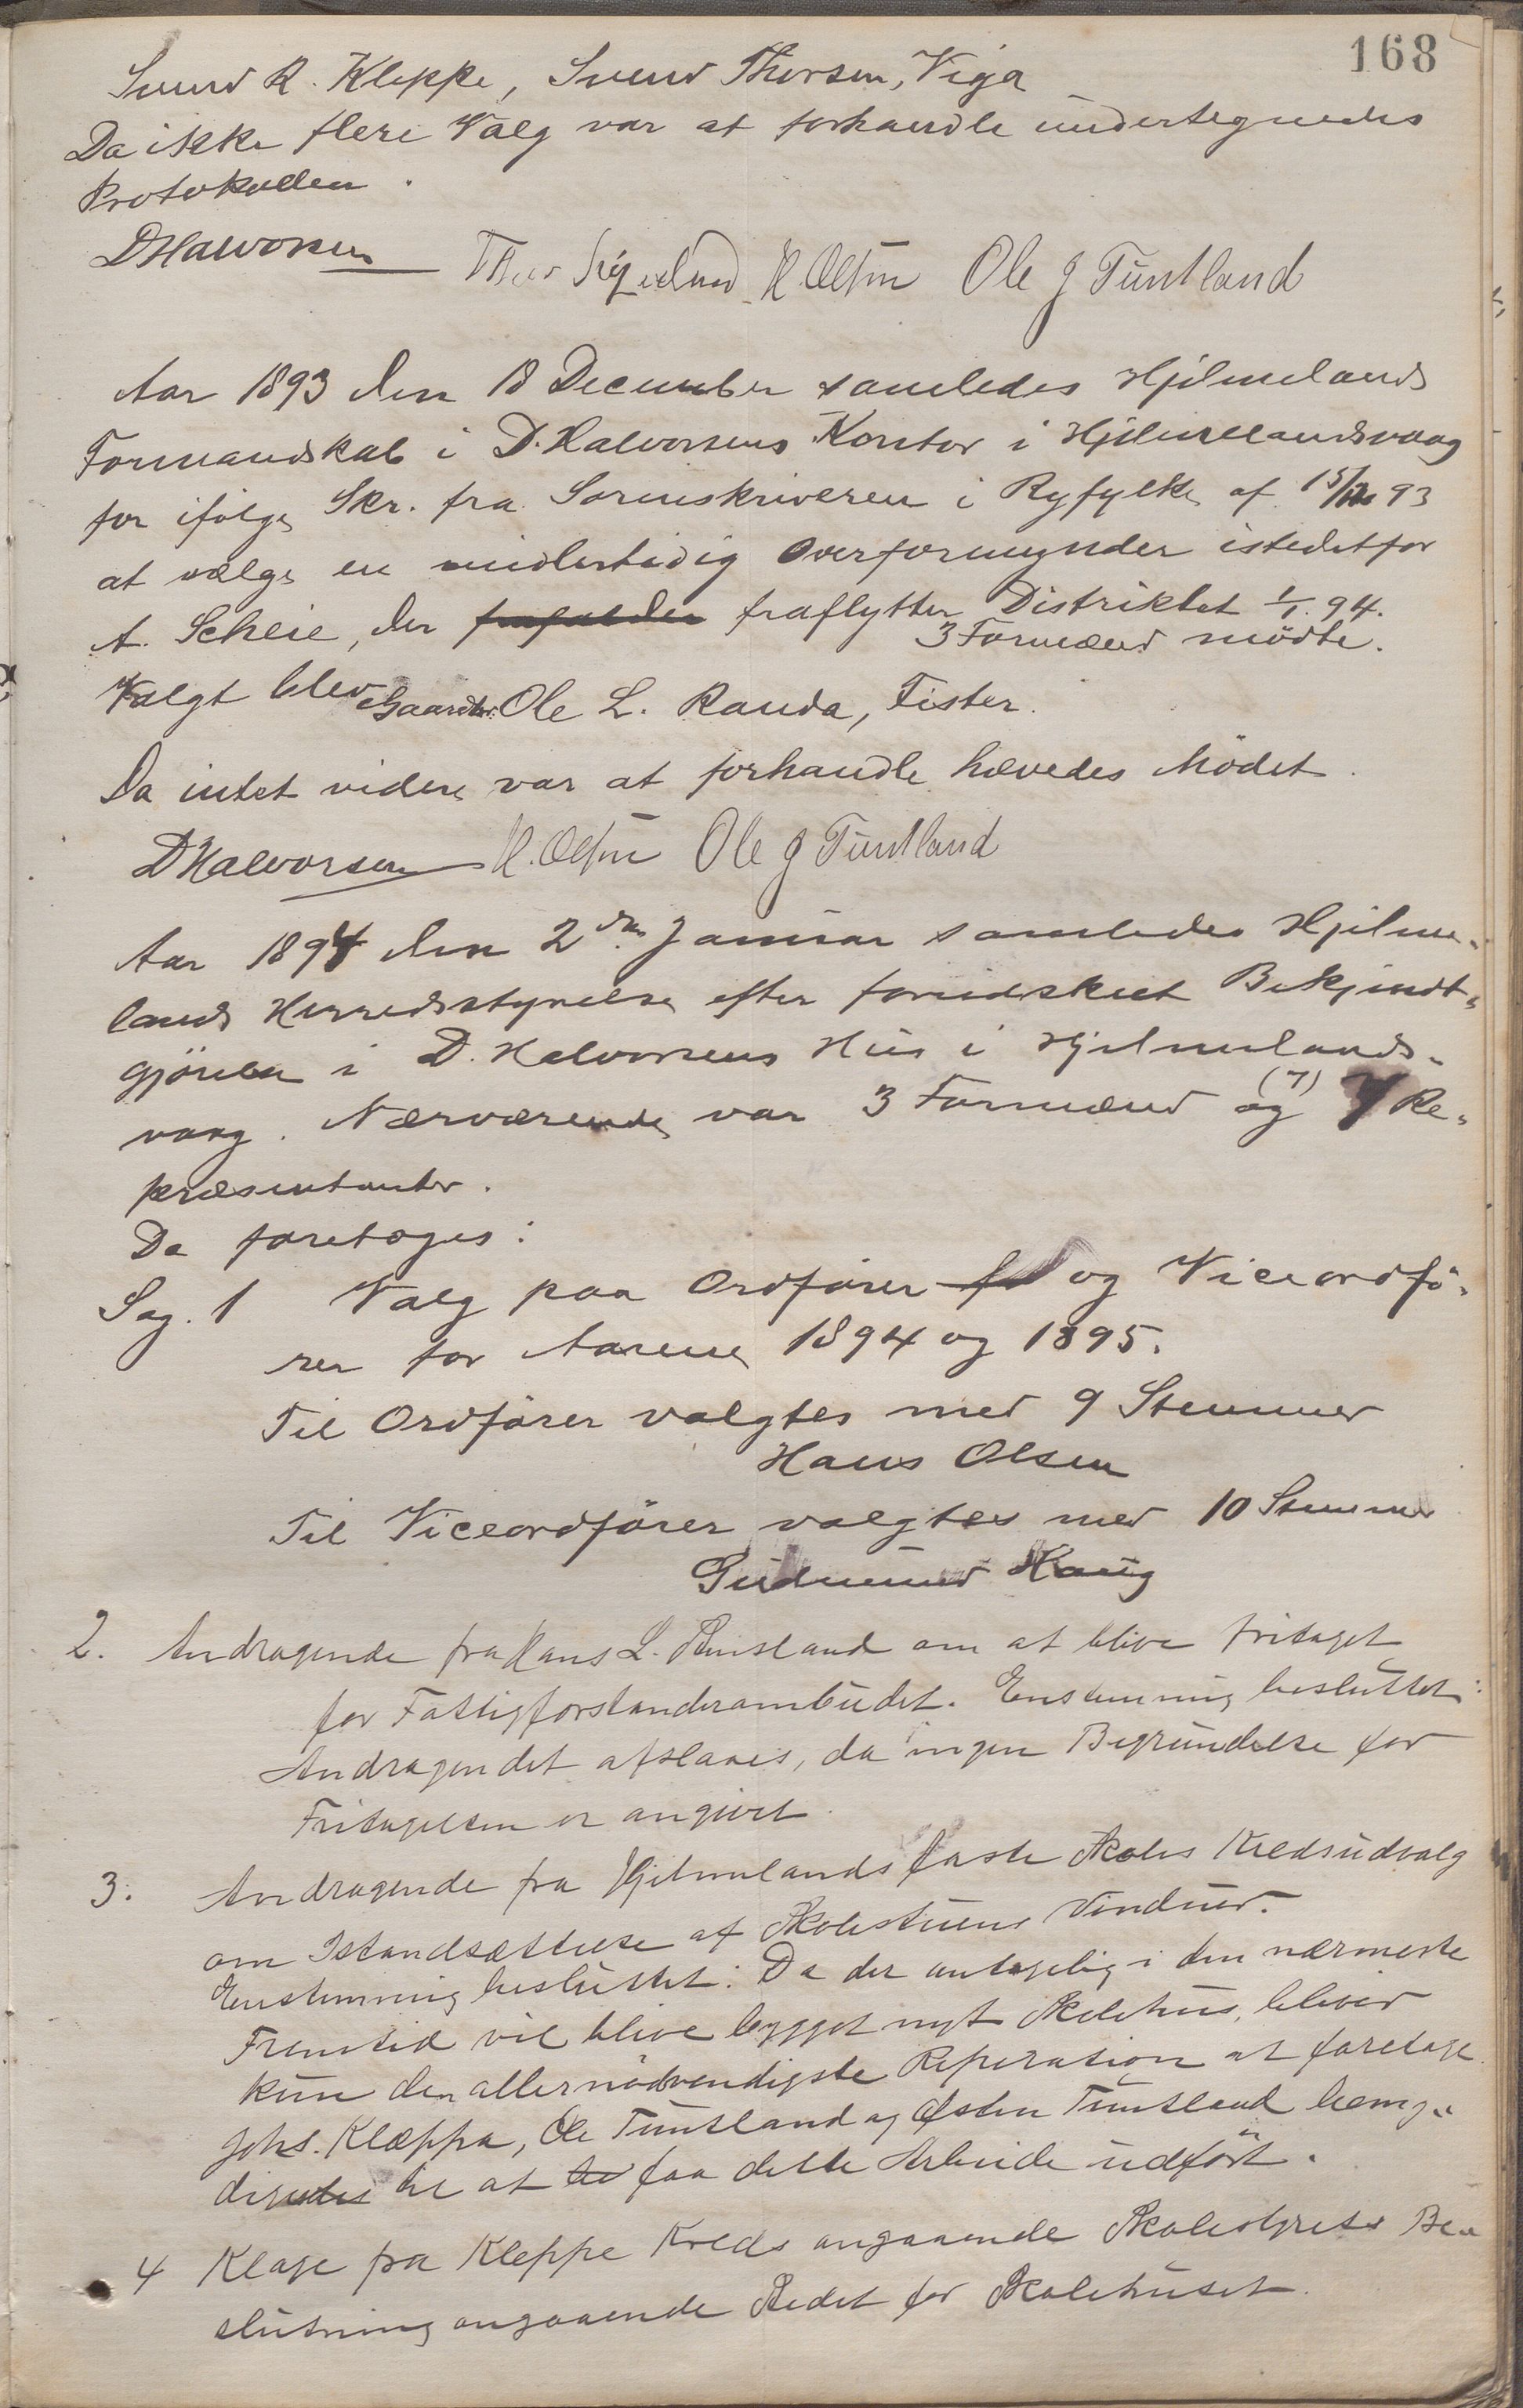 168
Svend R. Kleppe, Svend Thorsen, Viga
Da ikke flere Valg var at forhandle undertegnedes
Protokollen.
DHalvorsen H. Olsen Ole J Tuntland
Aar 1893 den 18 December samledes Hjelmelands
Formandskab i D. Halvorsens Kontor i Hjelmelandsvaag
for ifölge Skr. fra Sorenskriveren i Ryfylke af 15/12 93
at vælge en midlertidig Overformynder istedetfor
A. Scheie, der fraflytter Distriktet 1/1. 94.
3 Formænd mödte.
Valgt blev Gaardbr. Ole L. Randa, Fister.
Da intet videre var at forhandle hævedes Mödet.
DHalvorsen H. Olsen Ole J Tuntland
Aar 1894 den 2den Januar samledes Hjelme-
lands Herredsstyrelse efter forudskeet Bekjendt-
gjörelse i D. Halvorsens Hus i Hjelmelands-
vaag. Nærværende var 3 Formænd og (7) 7 Re-
præsentanter.
Da foretoges:
Sag. 1 Valg paa Ordförer og Viceordfö-
rer for Aarene 1894 og 1895.
Til Ordförer valgtes med 9 Stemmer
Hans Olsen
Til Viceordförer valgtes med 10 Stemmer
Gudmund Haug
2. Andragende fra Hans L. Funsland om at blive fritaget
for Fattigforstanderombudet. Enstemmig besluttet:
Andragendet afslaaes, da ingen Begrundelse for
Fritagelsen er angivet.
3. Andragende fra Hjelmelands faste Skoles Kredsudvalg
om Istandsættelse af Skolestuens Vinduer.
Enstemmig besluttet: Da der antagelig i den nærmeste
Fremtid vil blive bygget nyt Skolehus, bliver
kun den allernödvendigste Reparation at foretage.
Johs. Kleppa, Ole Tuntland og Østen Tuntland bemyn-
digedes til at faa dette Arbeide udfört.
4 Klage fra Kleppe Kreds angaaende Skolestyrets Be-
slutning angaaende Stedet for Skolehuset.